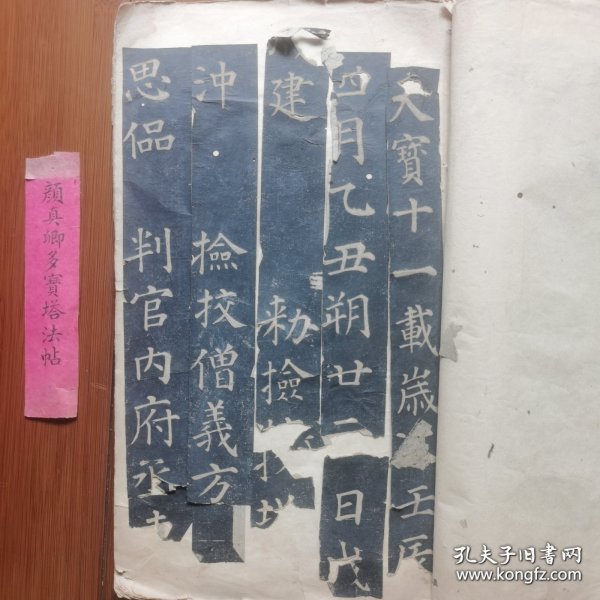 天寶十一載歲壬辰
四月乙丑朔廿二日戊
建 勑檢
沖 撿挍僧義方
思侣 判官内府丞
顏真卿多寶塔法帖
孔夫子旧书网
www.kongfz.com